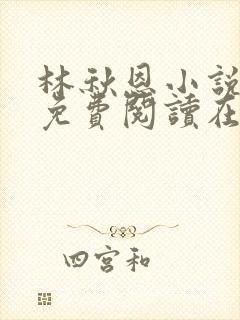 林秋恩小說
免費閱讀在
四宮和